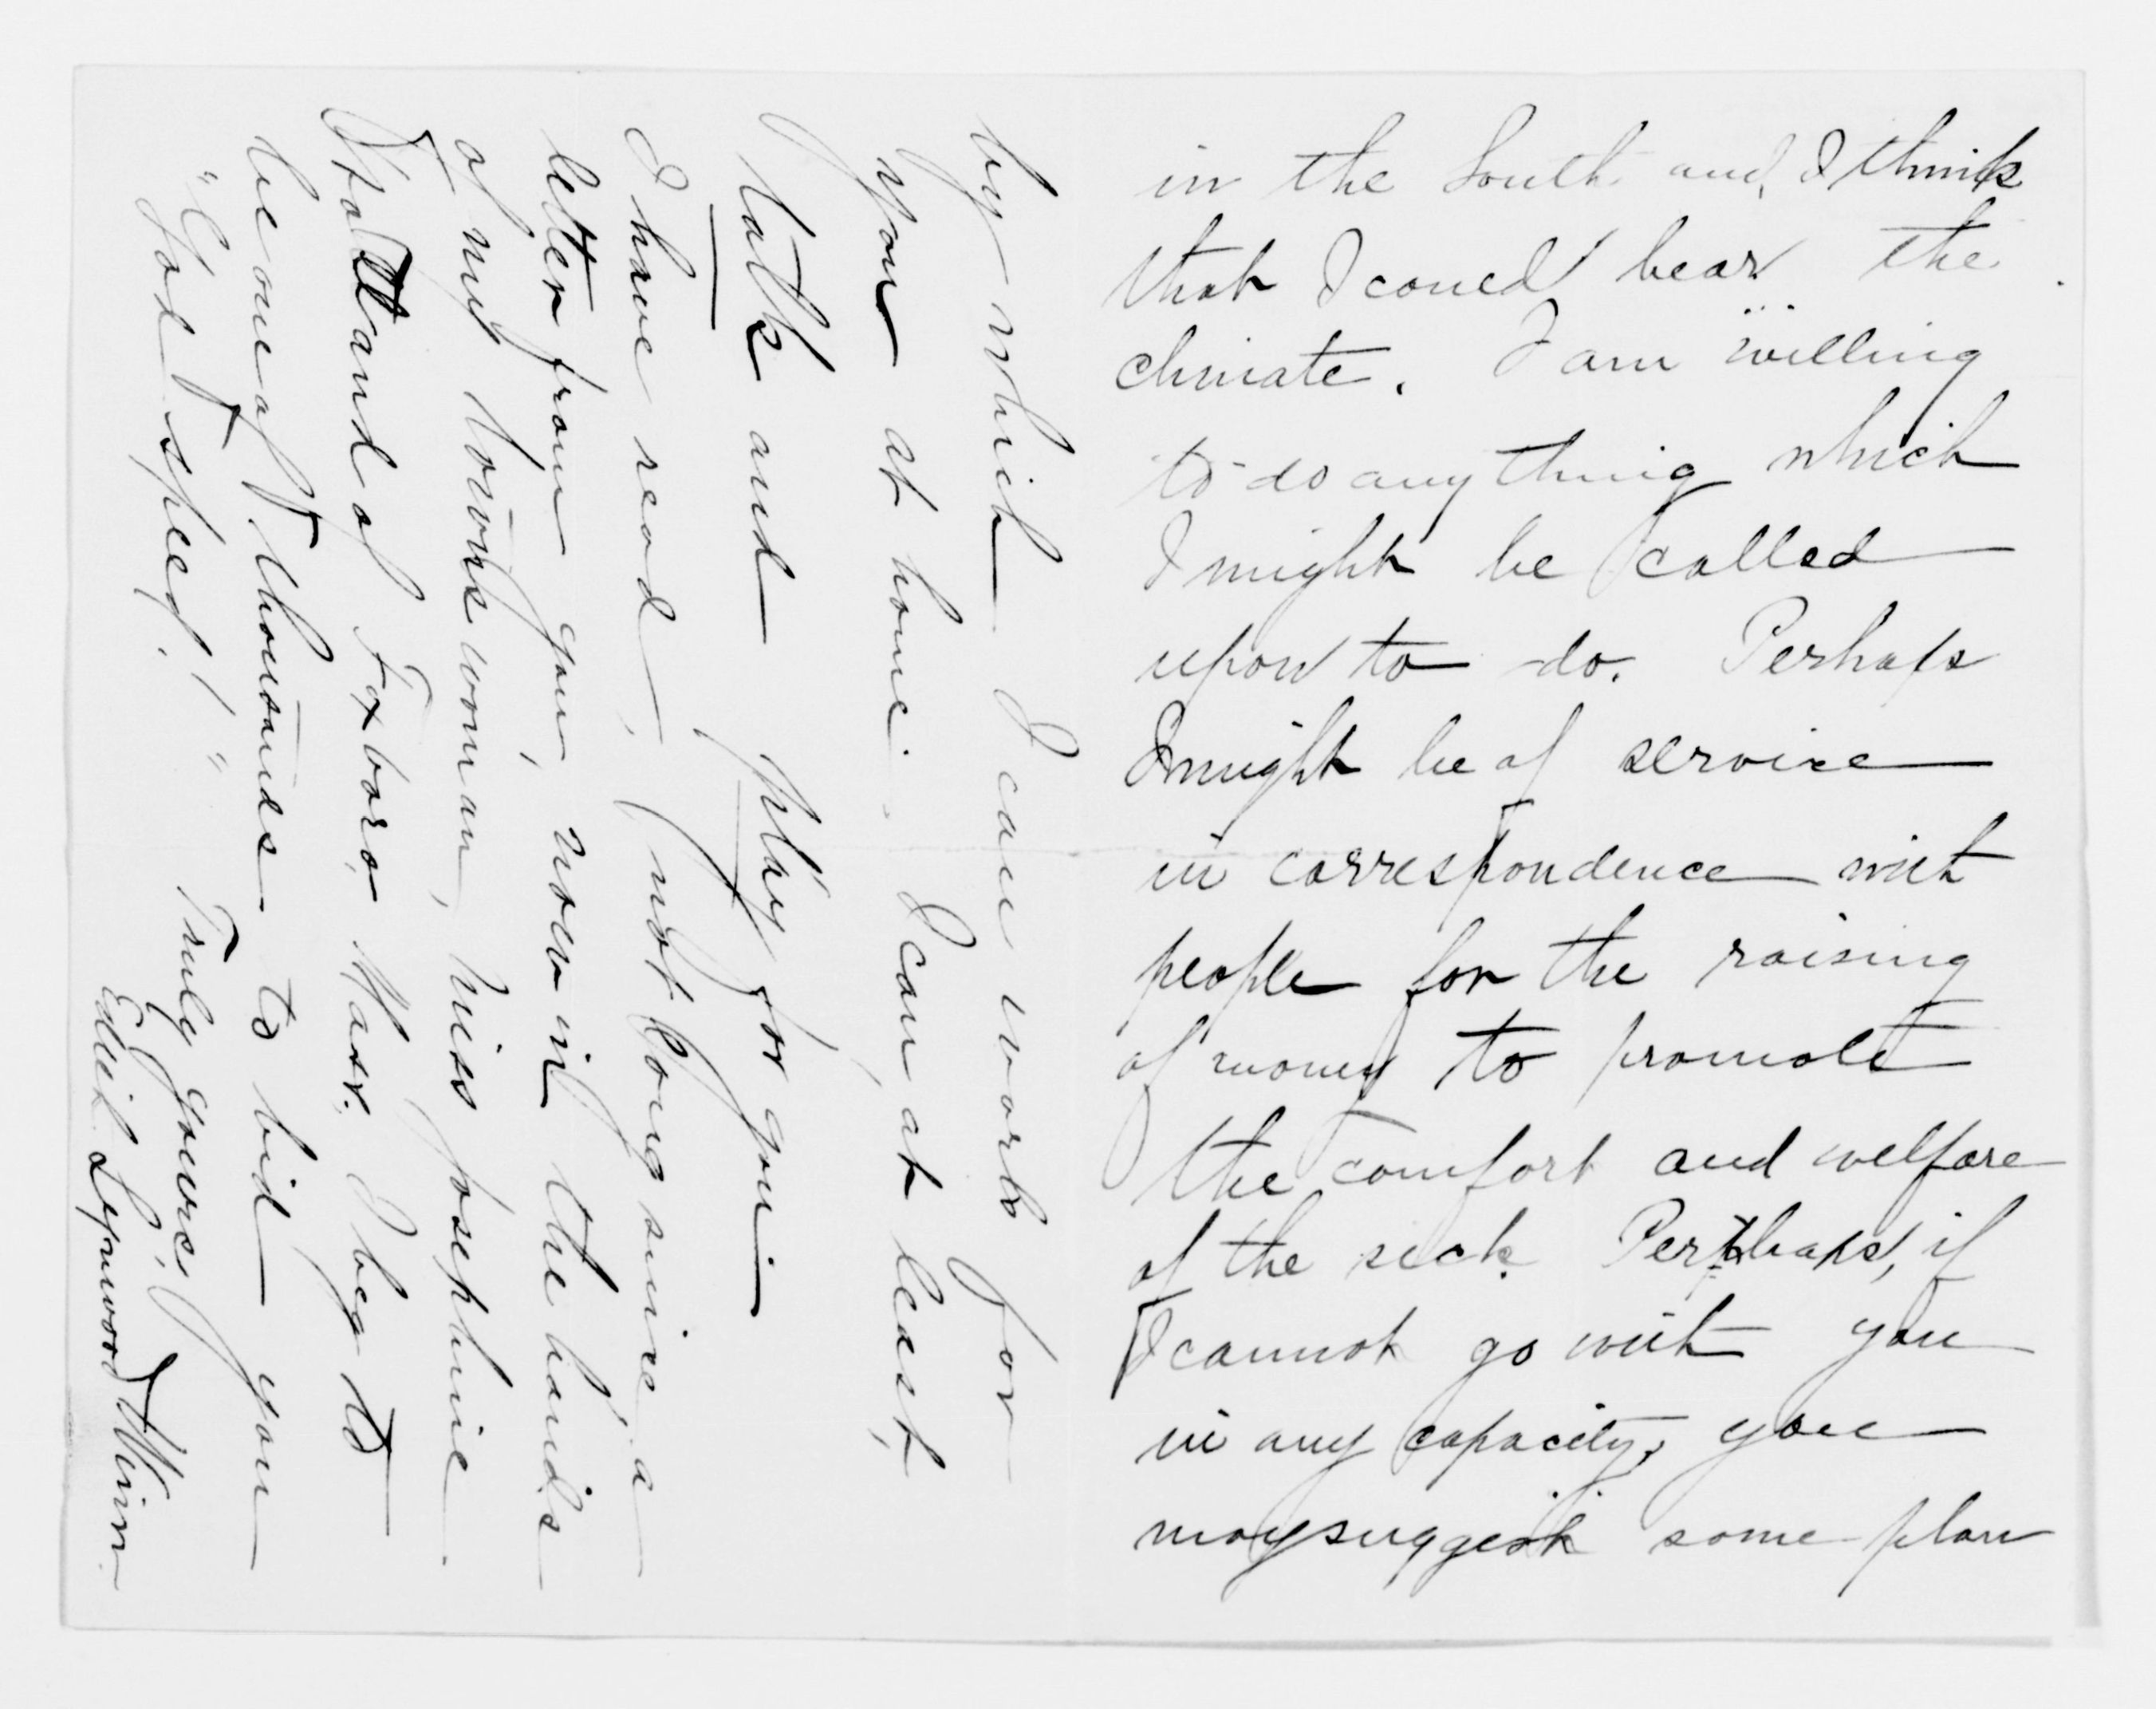 in the South and, I think
that I could bear the
climate. I am willing
to do anything which
I might be called
upon to do. Perhaps
I might be of service
in correspondence with
people for the raising
of money to promote
the comfort and welfare
of the sick. Perhaps, if
I cannot go with you
in any capacity, you
may suggest some plan
by which I can work for
you at home. I can at least,
talk and play for you
I have read, not long since, a
letter from you, now in the hands
of my towns woman, Miss Josephine
and of Foxboro, Mass. I beg to
be one of thousands to bid you
"God speed!"
Truly yours,